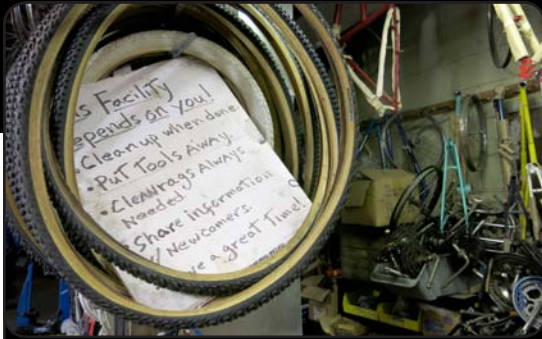 is Facility
epends on you!
• Clean up when done
• Put Tools Away.
• Clean rags Always
Needed
• Share information
w/ Newcomers.
ve a great Time!